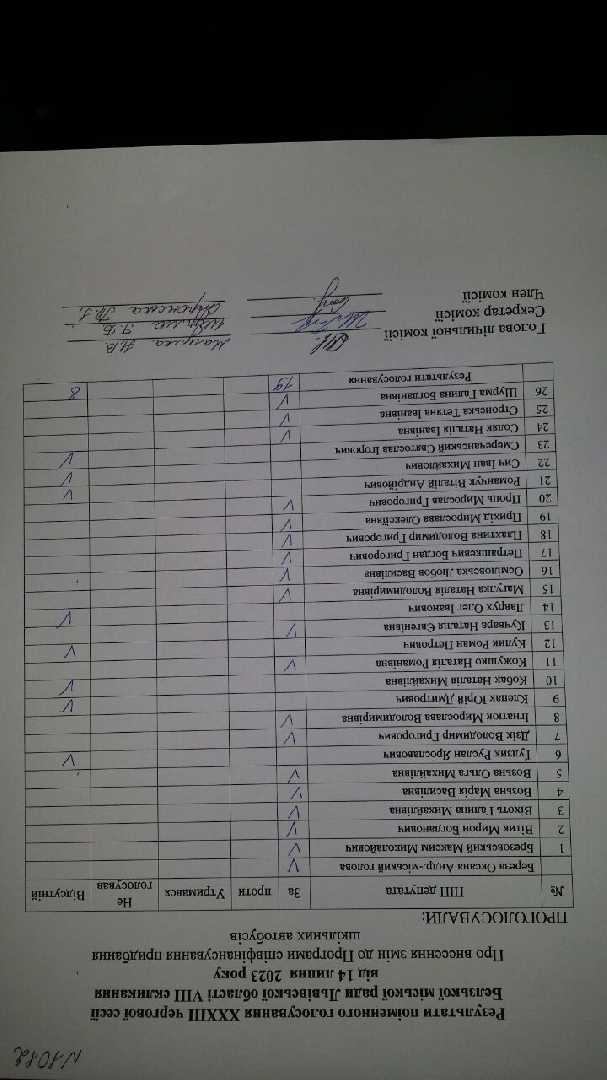 №1082
Результати поіменного голосування XXXIII чергової сесії
Белзької міської ради Львівської області VIII скликання
від 14 липня 2023 року
Про внесення змін до Програми співфінансування придбання
шкільних автобусів
ПРОГОЛОСУВАЛИ:
№ ПІП депутата За проти Утримався Не голосував Відсутній
Береза Оксана Андр.-міський голова V
1 Брезовський Максим Миколайович V
2 Вітік Мирон Богданович V
3 Вікоть Галина Михайлівна V
4 Возьна Марія Василівна V
5 Возьна Ольга Михайлівна V
6 Гудзик Руслан Ярославович V
7 Дзіх Володимир Григорович V
8 Ігнатюк Мирослава Володимирівна V
9 Клепах Юрій Дмитрович V
10 Кобак Наталія Михайлівна V
11 Кожушко Наталія Романівна V
12 Кулик Роман Петрович V
13 Кучвара Наталія Євгенівна V
14 Лаврух Олег Іванович V
15 Магулка Наталія Володимирівна V
16 Осмиловська Любов Василівна V
17 Петрашкевич Богдан Григорович V
18 Плахтина Володимир Григорович V
19 Прихід Мирослава Олексіївна V
20 Проць Мирослав Григорович V
21 Романчук Віталій Андрійович V
22 Сич Іван Михайлович V
23 Смеречанський Святослав Ігорович V
24 Соляк Наталія Іванівна V
25 Стронська Тетяна Іванівна V
26 Шурма Галина Богданівна V
Результати голосування 19 8
Голова лічильної комісії Магулка Н.В.
Секретар комісії
Член комісії Стронська Т.І.